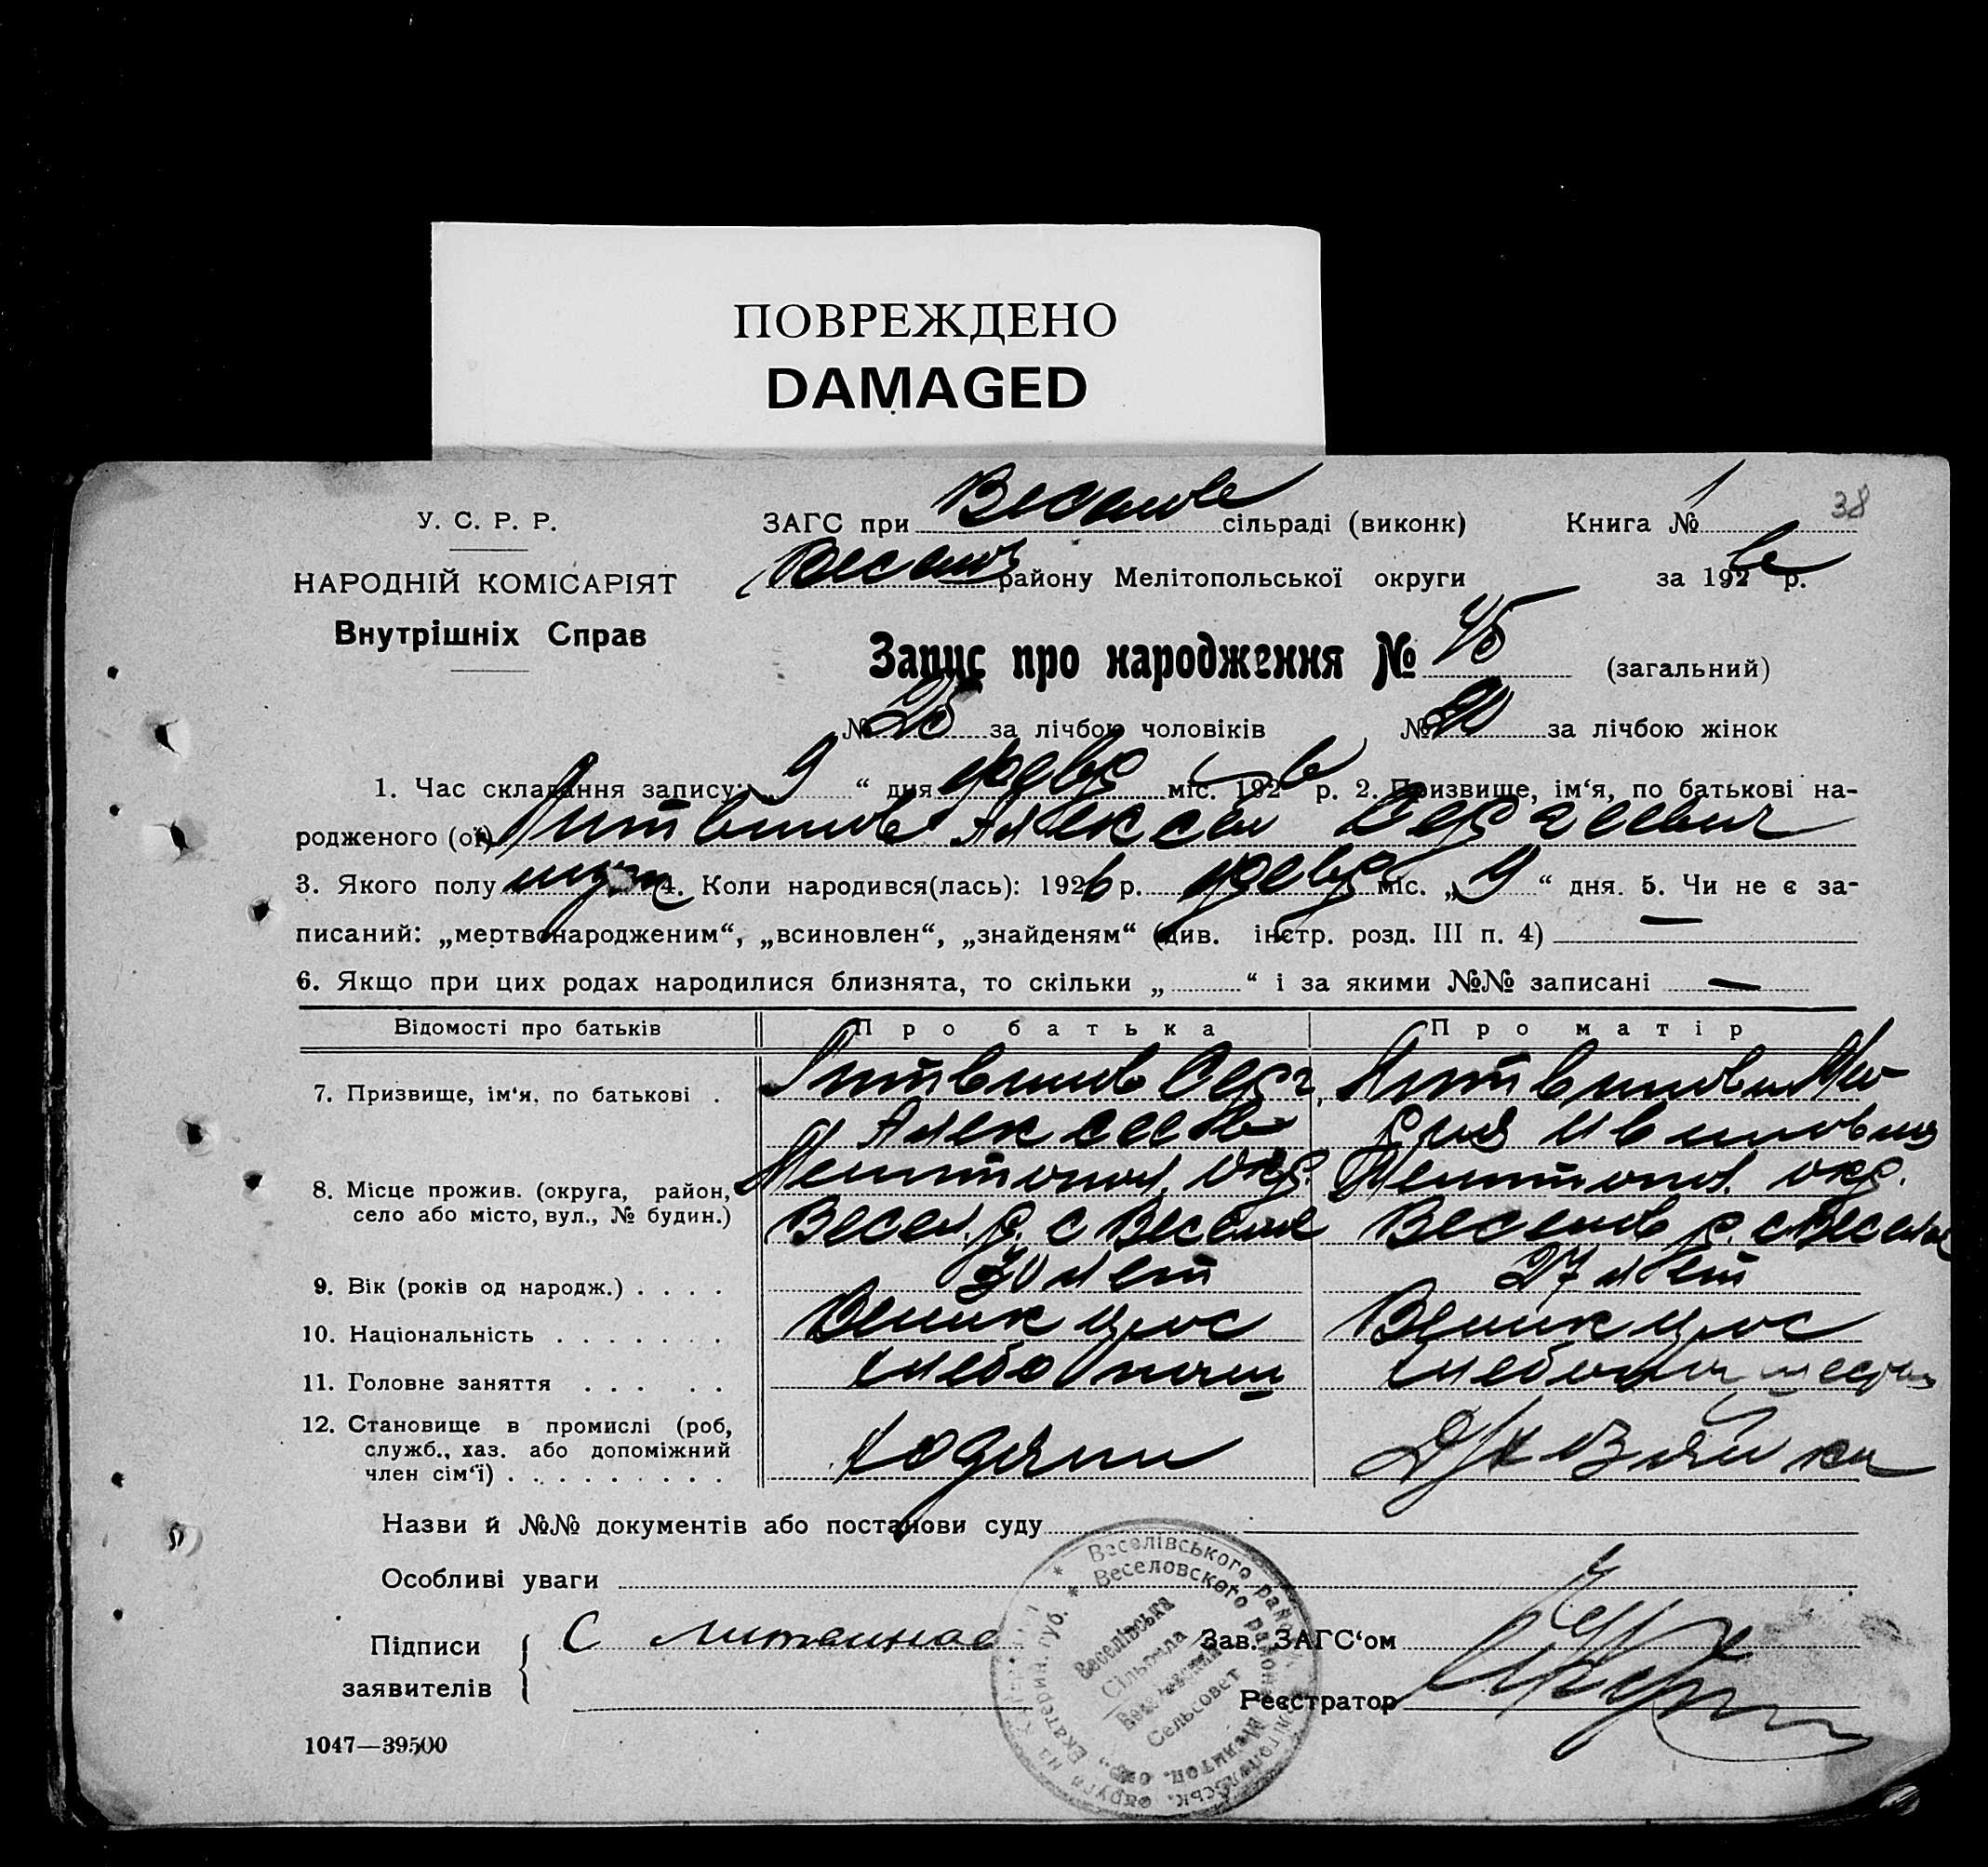 ПОВРЕЖДЕНО
DAMAGED
38
У. С. Р. Р.
НАРОДНІЙ КОМІСАРІЯТ
Внутрішніх Справ
ЗАГС при сільраді (виконк) Книга № 1
району Мелітопольської округи за 1926 р.
Запис про народження № 45 (загальний)
№ 25 за лічбою чоловіків № 20 за лічбою жінок
1. Час складання запису: 9 “ дня февр міс. 1926 р. 2. Призвище, ім‘я, по батькові на-
родженого (ої) Литвинов Алексей Сергеевич
3. Якого полу муж 4. Коли народився(лась): 1926 р. февр міс. „ 9 “ дня. 5. Чи не є за-
писаний: „мертвонародженим“, „всиновлен“, „знайденям“ (див. інстр. розд. III п. 4) —
6. Якщо при цих родах народилися близнята, то скільки „ “ і за якими №№ записані —
Відомості про батьків Про батька Про матір
7. Призвище, ім‘я, по батькові . Литвинов Серг. Литвинова Ма-
Алексеев рия Ивановна
8. Місце прожив. (округа, район, Мелитопол. окр. Мелитопол. окр.
село або місто, вул., № будин.) Весел. р. с Веселое Веселов р. с Веселое
9. Вік (років од народж.) . . . . 30 лет 27 лет
10. Національність . . . . . . . Великорос Великорос
11. Головне заняття . . . . . хлебопаш
12. Становище в промислі (роб,
служб., хаз. або допоміжний
член сім‘ї) . . . . . . . . . хозяин Д/хозяйка
Назви й №№ документів або постанови суду
Особливі уваги
Підписи
заявителів
С Литвинов
Зав. ЗАГС‘ом
Реєстратор
Веселівського район
Веселовского района
Веселівська
Сільрада
Сельсовет
1047—39500